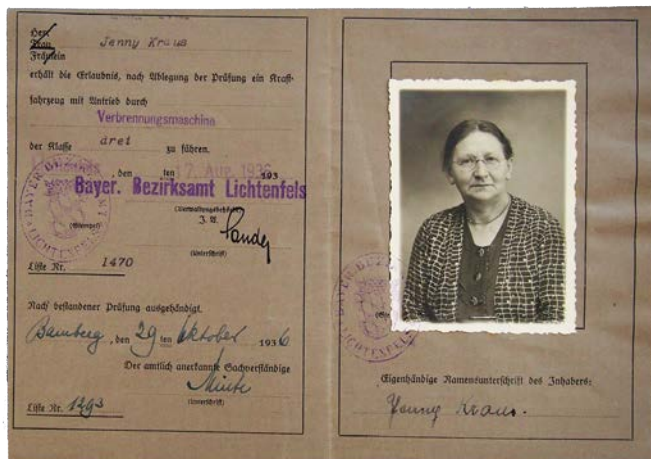 Herr
Frau Jenny Kraus
Fräulein
erhält die Erlaubnis, nach Ablegung der Prüfung ein Kraft-
fahrzeug mit Antrieb durch
Verbrennungsmaschine
der Klasse drei zu führen.
, den ten 17. Aug. 1936 193
Bayer. Bezirksamt Lichtenfels
(Verwaltungsbehörde)
(Stempel) J. A.
(Unterschrift)
Liste Nr. 1470
Nach bestandener Prüfung ausgehändigt.
Bamberg, den 29 ten Oktober 1936
Der amtlich anerkannte Sachverständige
(Unterschrift)
Liste Nr. 1293
BAYER. BEZIRKSAMT LICHTENFELS
Eigenhändige Namensunterschrift des Inhabers:
Jenny Kraus.